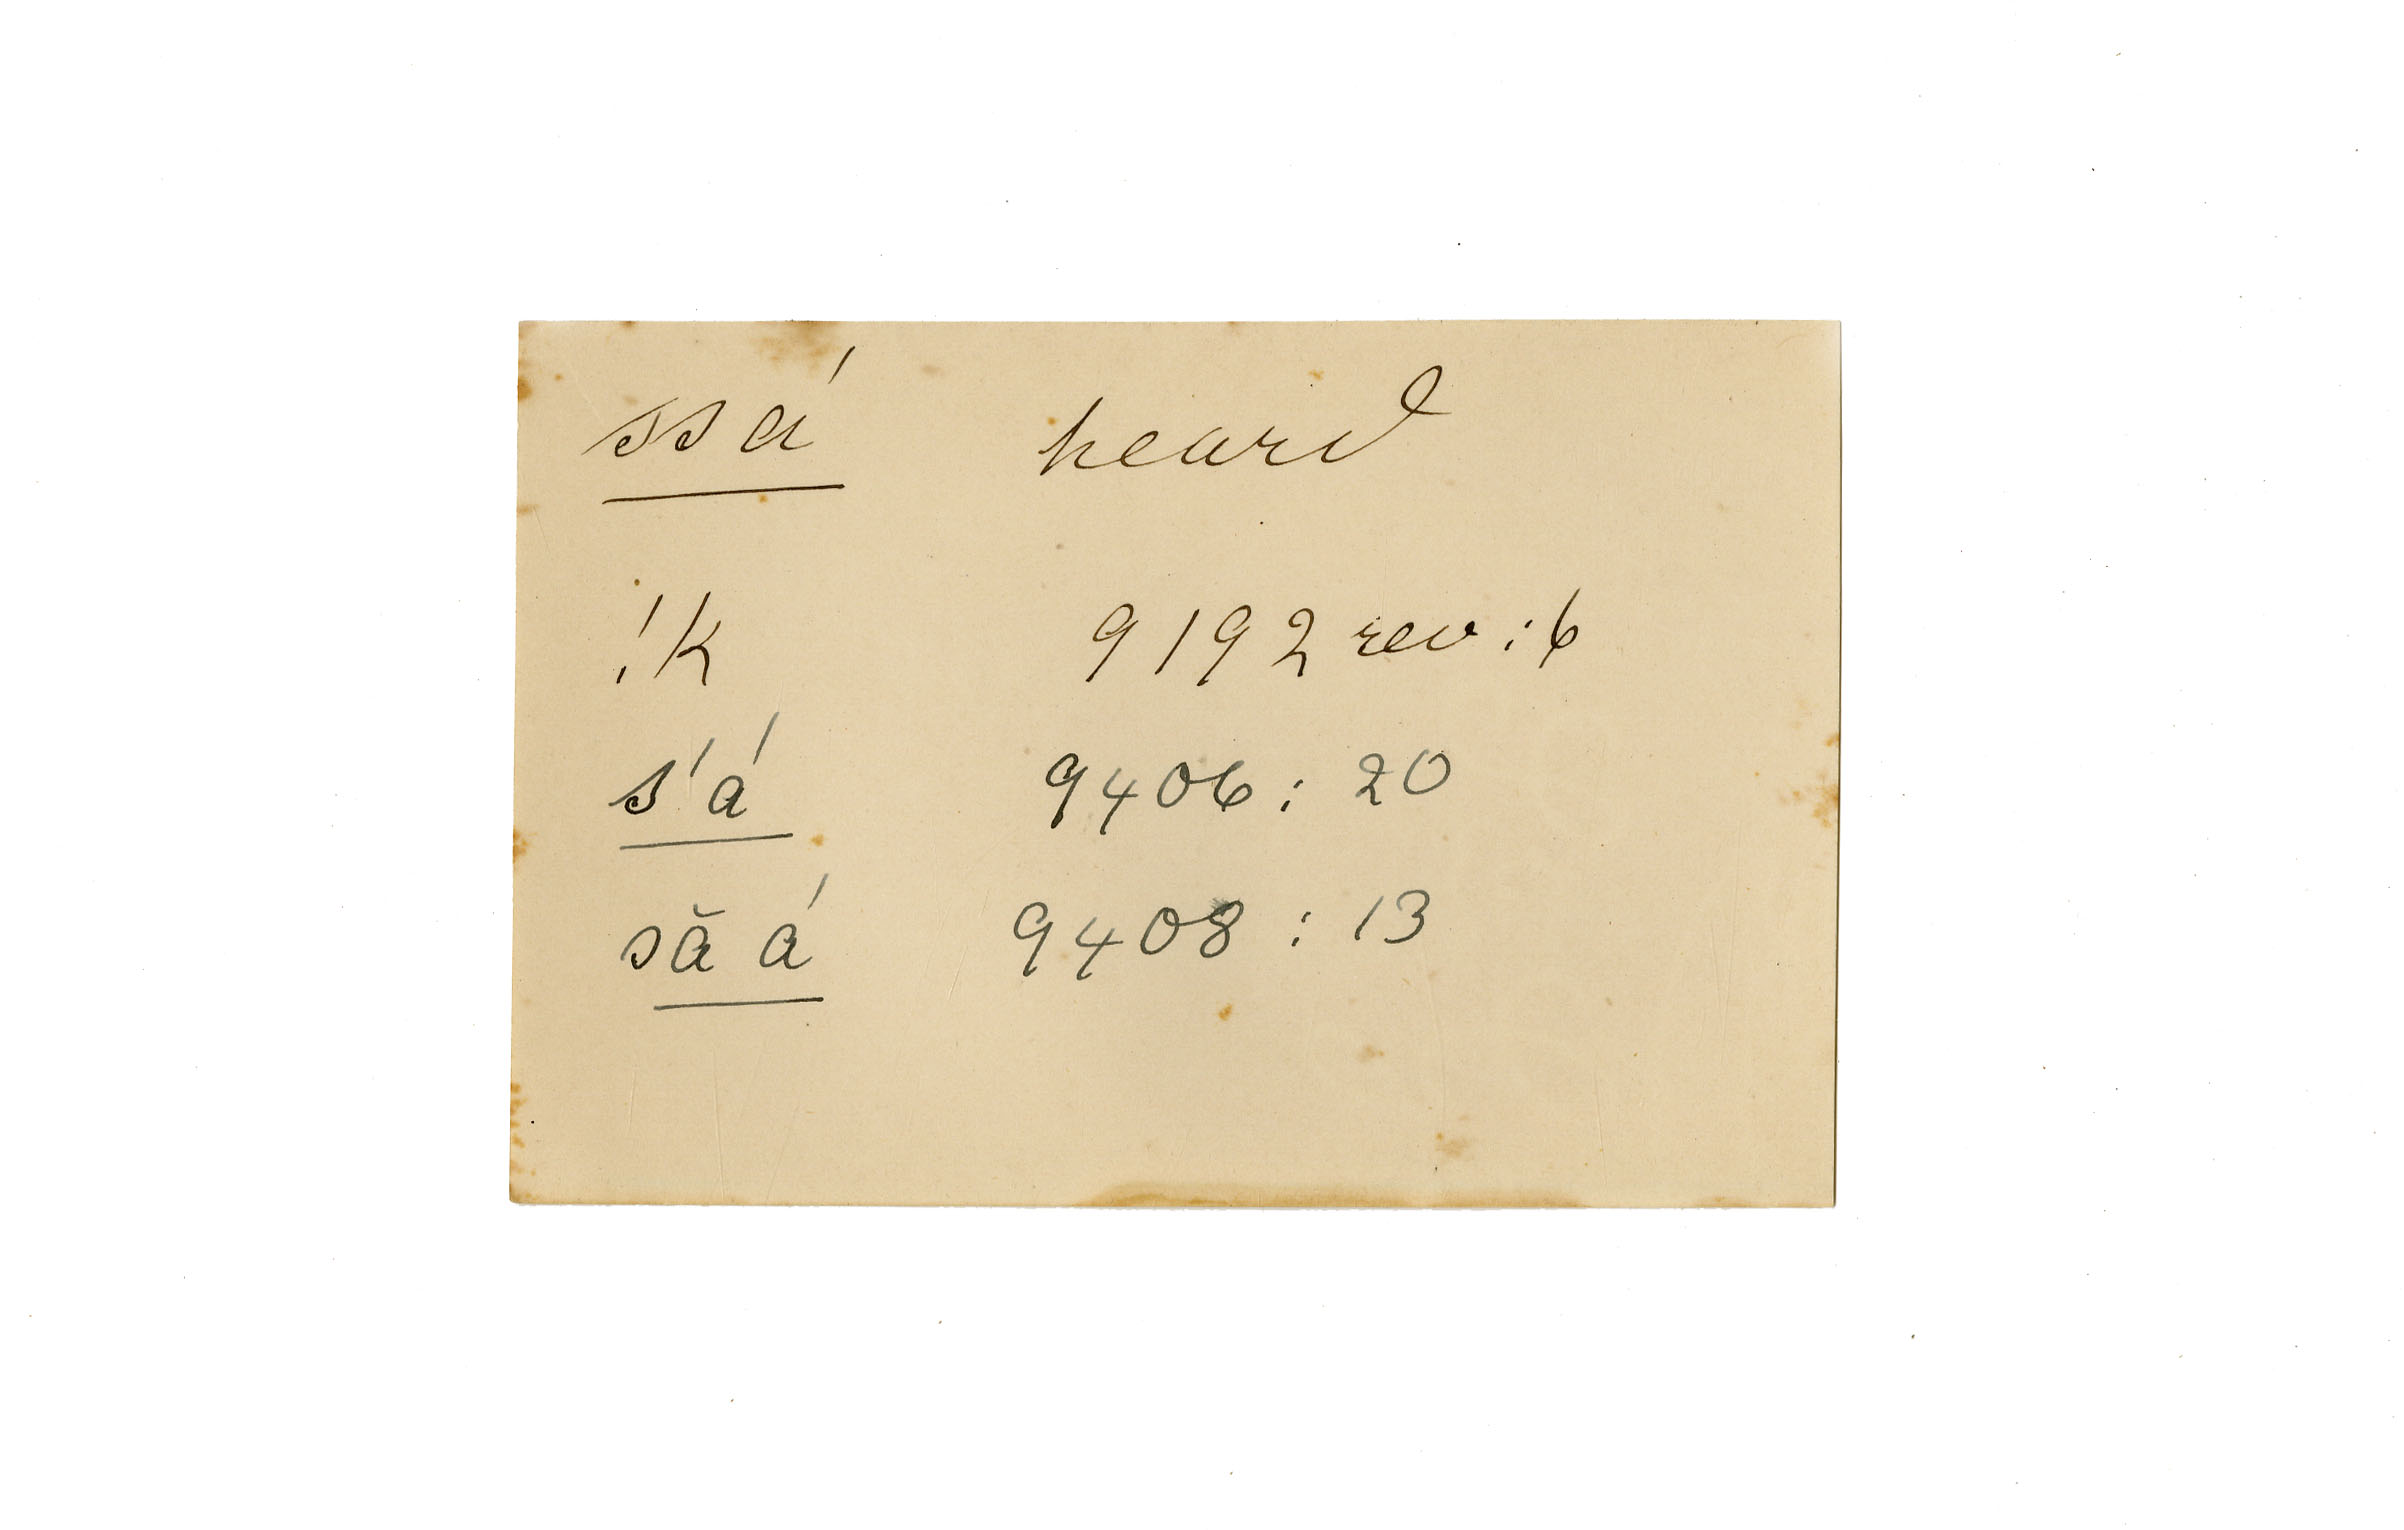 ssá heard
!k 9192 rev : 6
s'á 9406 : 20
să á 9408 : 13